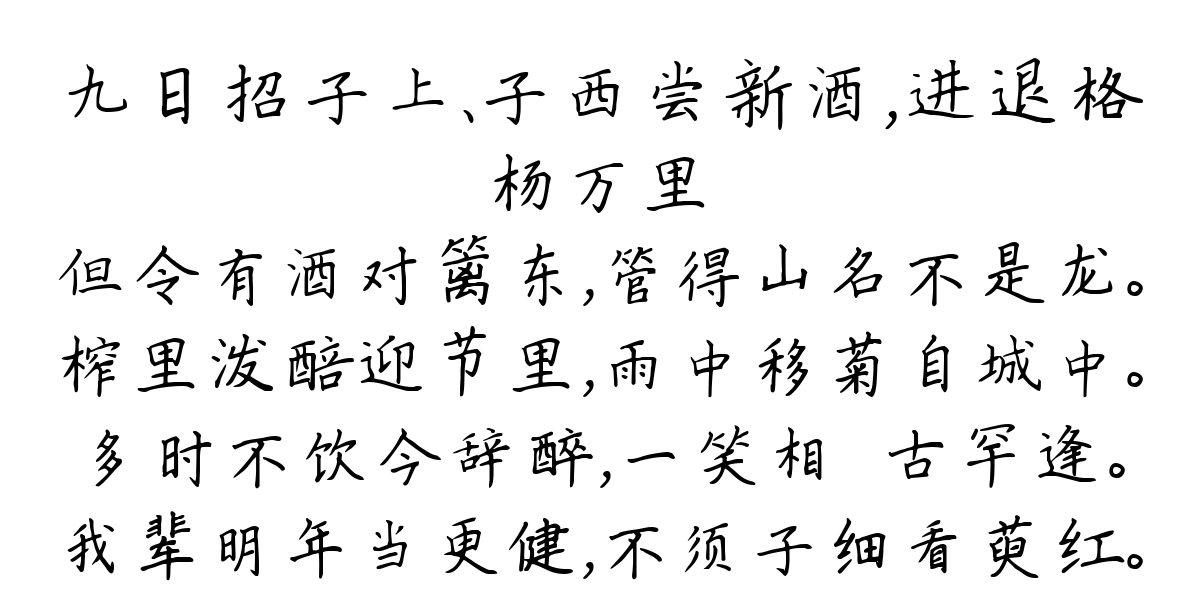 九日招子上、子西尝新酒,进退格
杨万里
但令有酒对篱东,管得山名不是龙。
榨里泼醅迎节里,雨中移菊自城中。
多时不饮今辞醉,一笑相 古罕逢。
我辈明年当更健,不须子细看萸红。